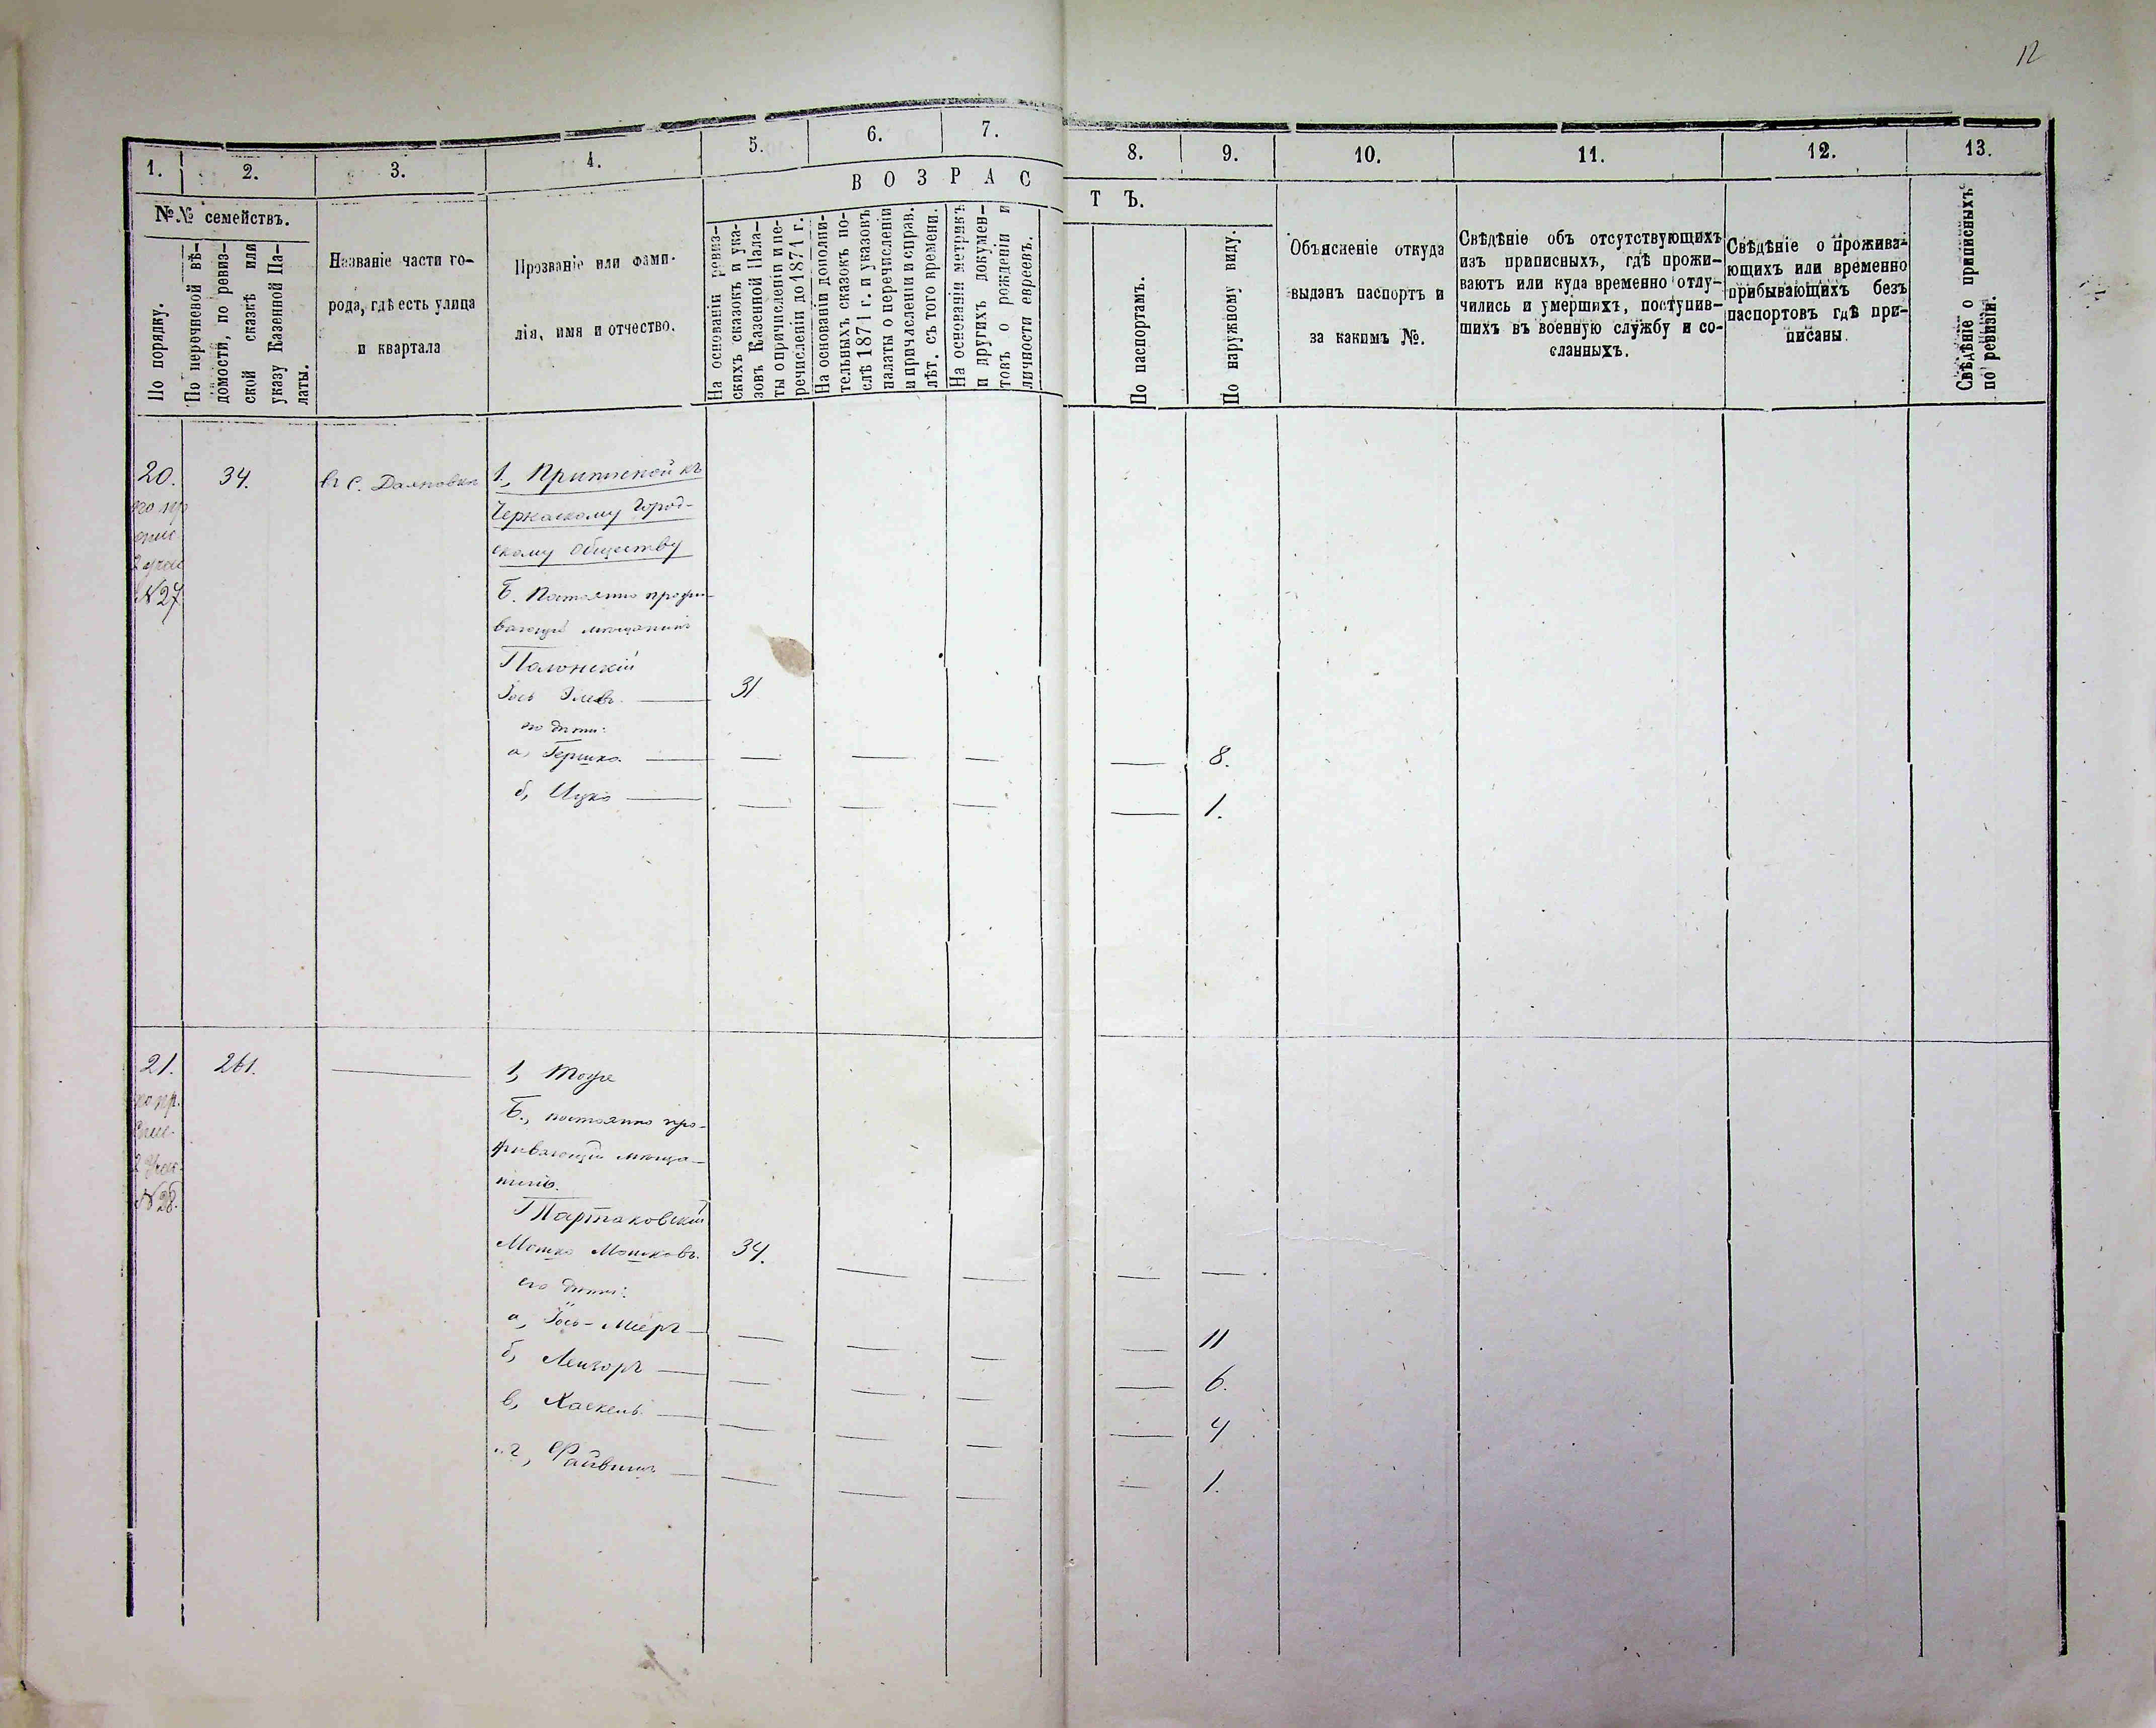 12
1.
2.
3.
4.
5.
6.
7.
8.
9.
10.
11.
12.
13.
№№ семействъ.
По порядку.
По перечневой вѣ-
домости, по ревиз-
ской сказкѣ или
указу Казенной Па-
латы.
Названіе части го-
рода, гдѣ есть улица
и квартала
Прозваніе или фами-
лія, имя и отчество.
ВОЗРАС
ТЪ.
На основаніи ревиз-
скихъ сказокъ и ука-
зовъ Казенной Пала-
ты о причисленіи и пе-
речисленіи до 1871 г.
На основаніи дополни-
тельныхъ сказокъ по-
слѣ 1871 г. и указовъ
палаты о перечисленіи
и причисленіи и справ.
лѣт. съ того времени.
На основаніи метрикъ
и другихъ докумен-
товъ о рожденіи и
личности евреевъ.
По паспортамъ.
По наружному виду.
Объясненіе откуда
выданъ паспортъ и
за какимъ №.
Свѣдѣніе объ отсутствующихъ
изъ приписныхъ, гдѣ прожи-
ваютъ или куда временно отлу-
чились и умершихъ, поступив-
шихъ въ военную службу и со-
сланныхъ.
Свѣдѣніе о прожива-
ющихъ или временно
прибывающихъ безъ
паспортовъ гдѣ при-
писаны.
Свѣдѣніе о приписныхъ
по ревизіи.
20.
34.
въ С.
1, Приписной къ
Черкаскому Город-
скому Обществу
№27
Б. Постоянно прожи-
вающій мѣщанинъ
Полонскій
Іось 31
его дѣти:
а, Гершко — — — — — 8.
б, Ицко — — — — — 1.
21.
261.
—
1, Тоже
Б., постоянно про-
живающій мѣща-
нинъ.
№28.
Тартаковскій
Мошко Мошковъ. 34. — — — —
его дѣти:
а, Іось-Меерь — — — — — 11
б, Лейзоръ — — — — — 6.
в, Хаскель — — — — — 4
г, Файвишъ — — — — — 1.